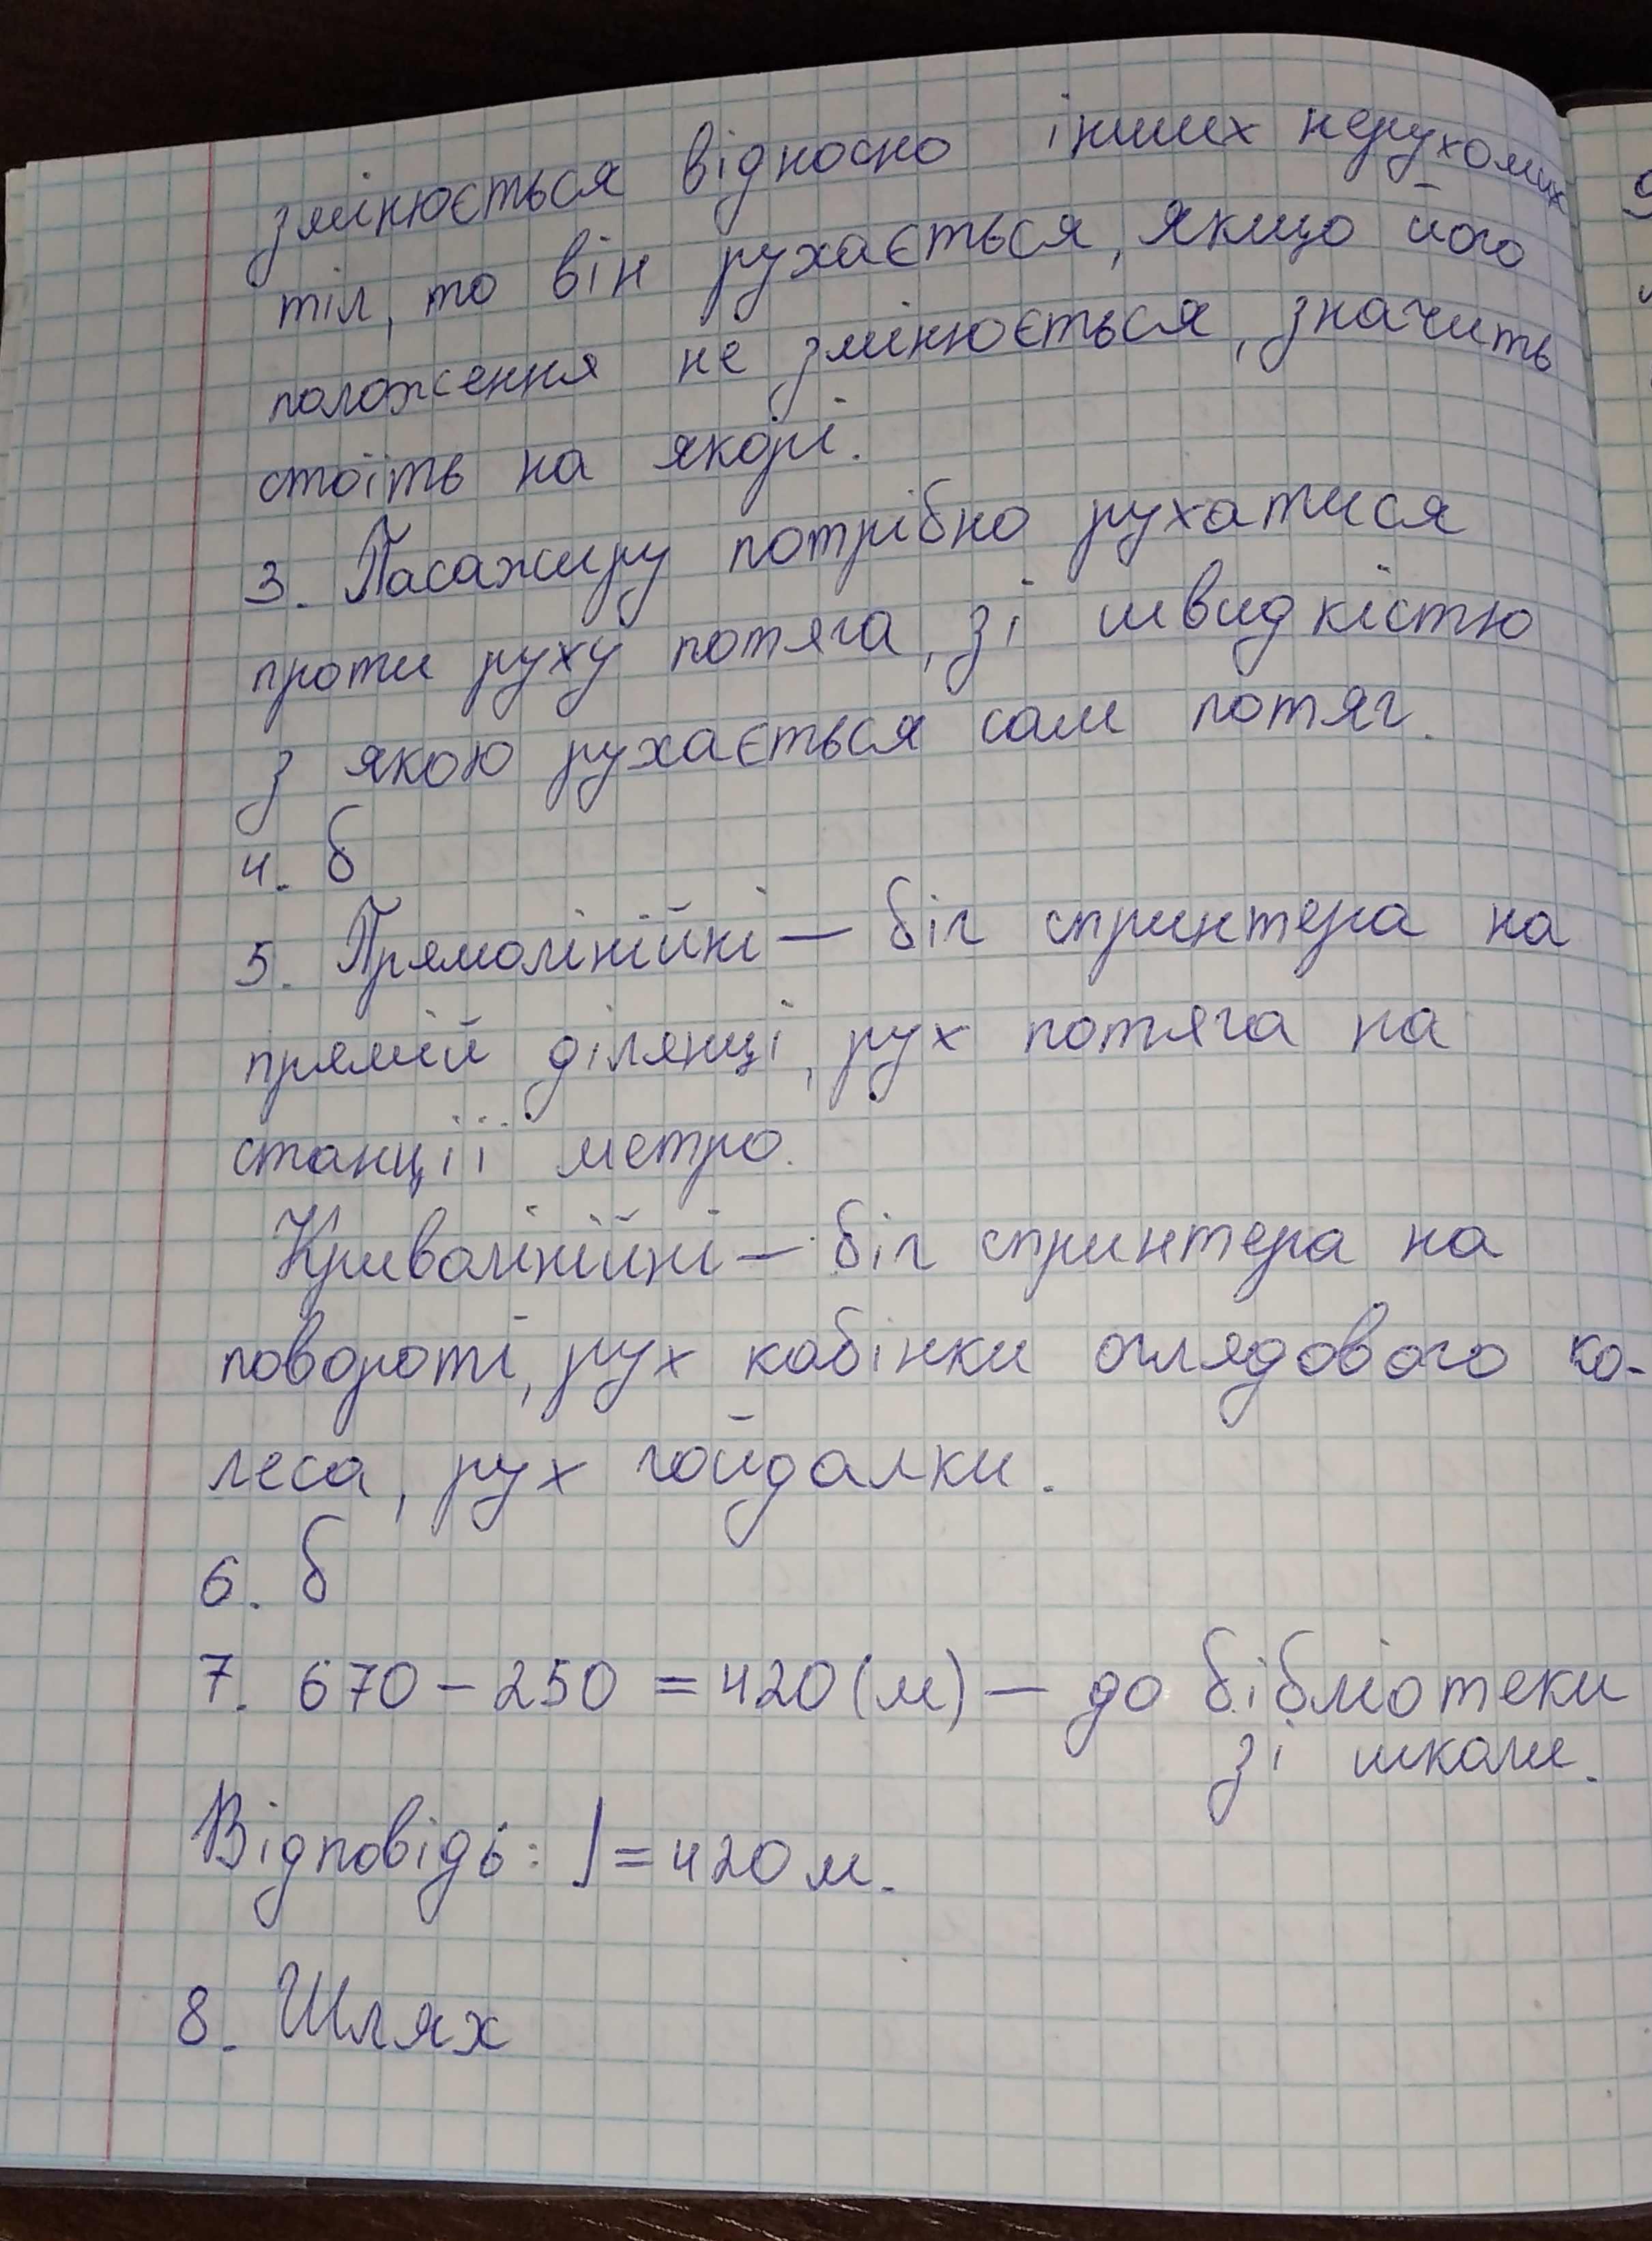 змінюється відносно інших нерухомих
тіл, то він рухається, якщо його
положення не змінюється, значить
стоїть на якорі.
3. Пасажиру потрібно рухатися
проти руху потяга, зі швидкістю
з якою рухається сам потяг.
4. б
5. Прямолінійні — біг спринтера на
прямій ділянці, рух потяга на
станції метро.
Криволінійні — біг спринтера на
повороті, рух кабінки оглядового ко-
леса, рух гойдалки.
6. б
7. 670 - 250 = 420 (м) — до бібліотеки
зі школи.
Відповідь: l = 420 м.
8. Шлях